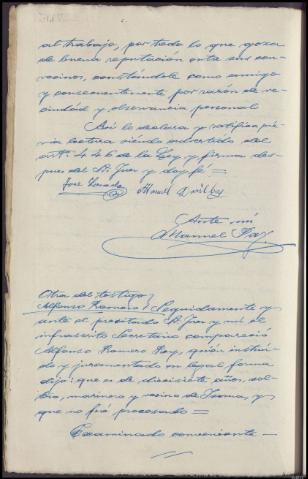 al trabajo, por todo lo que goza
de buena reputación entre sus con-
vecinos, constándole como amigo
y consecuentemente por razón de ve-
cindad y observancia personal
Así lo declara y ratifica pre-
via lectura siendo advertido del
artº. 446 de la Ley y firma des-
pues del Sr. Juez y doy fe =
José Manuel
Ante mí
Manuel Paz
Otra del testigo
Alfonso Romero / Seguidamente y
ante el precitado Sr. Juez y mi el
infrascrito Secretario compareció
Alfonso Romero Rey, quién instrui-
do y juramentado en legal forma
dijo: que es de diecisiete años, sol-
tero, marinero y vecino de y
que no fué procesado =
Examinado conveniente -